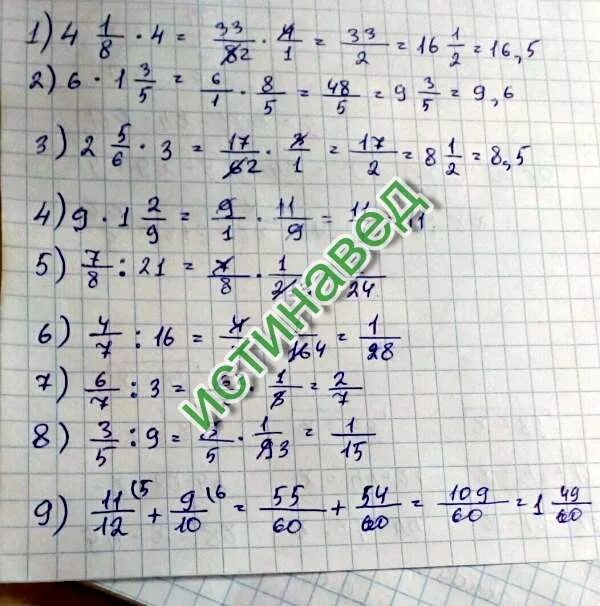 1) 4 1/8 · 4 = 33/82 · 4/1 = 33/2 = 16 1/2 = 16,5
2) 6 · 1 3/5 = 6/1 · 8/5 = 48/5 = 9 3/5 = 9,6
3) 2 5/6 · 3 = 17/62 · 3/1 = 17/2 = 8 1/2 = 8,5
4) 9 · 1 2/9 = 9/1 · 11/9 = 11
5) 7/8 : 21 = 7/8 · 1/ 24
6) 4/7 : 16 = 4/ 164 = 1/28
7) 6/7 : 3 = 1/3 = 2/7
8) 3/5 : 9 = 3/5 · 1/93 = 1/15
9) 11/12 (5 + 9/10 (6 = 55/60 + 54/60 = 109/60 = 1 49/60
ИСТИНАВЕД